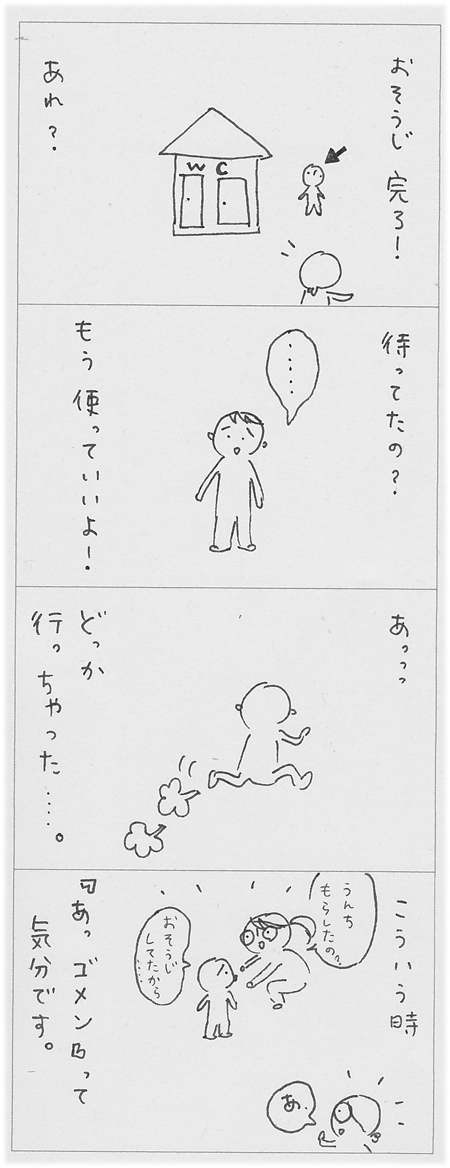 おそうじ 完了!
W C
あれ?
待ってたの?
……
もう 使っていいよ!
あっっっ
どっか
行っちゃった……。
こういう時
うんち
もらしたの?
おそうじ
してたから
……
あ。
『あっ ゴメン』って
気分です。